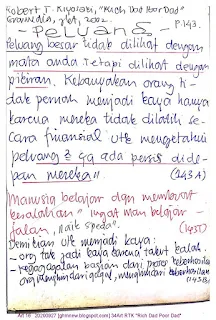 Robert T. Kiyosaki, "Rich Dad Poor Dad"
Gramedia, Jkt, 2002.
P 143.
- PELUANG -
Peluang besar tidak dilihat dengan
mata anda tetapi dilihat dengan
pikiran. Kebanyakan orang ti-
dak pernah menjadi kaya hanya
karena mereka tidak dilatih se-
cara finansial utk mengetahui
peluang2 yg ada persis dide-
pan mereka"
(143A)
Manusia belajar dgn membuat
kesalahan" ingat man belajar
jalan, naik speda".
(143D)
Demikian utk menjadi kaya:
- org tak jadi kaya karena takut kalah.
- kegagagalan bagian dari proses keberhasilan
org menghindari gagal, menghindari keberhasilan
(143B)
Art 16 20200927 jghmnew.blogspot.com | 34Art RTK "Rich Dad Poor Dad"